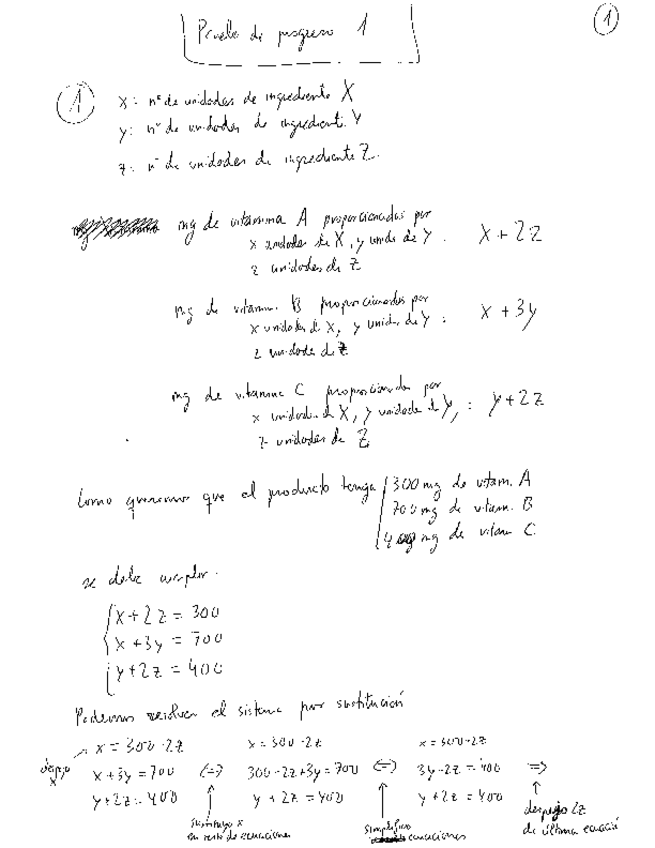 Prueba de progreso 1
1
1
x: nº de unidades de ingrediente X
y: nº de unidades de ingredient. Y
z: nº de unidades de ingrediente Z.
mg de vitamina A proporcionados por
x unidades de X, y unids de Y : x + 2z
z unidades de Z
mg de vitamin. B proporcionados por
x unidades de X, y unids. de Y : x + 3y
z unidads de Z
mg de vitamina C proporcionados por
x unidades de X, y unidads de Y, : y + 2z
z unidades de Z
Como queremos que el producto tenga 300 mg de vitam. A
700 mg de vitam. B
400 mg de vitam C.
se debe cumplir.
x + 2z = 300
x + 3y = 700
y + 2z = 400
Podemos resolver el sistema por sustitución
x = 300 - 2z x = 300 - 2z x = 300 - 2z
despejo x x + 3y = 700 <=> 300 - 2z + 3y = 700 <=> 3y - 2z = 400 =>
y + 2z = 400 y + 2z = 400 y + 2z = 400
sustituyo x en resto de ecuaciones
simplifico ecuaciones
despejo 2z de última ecuació